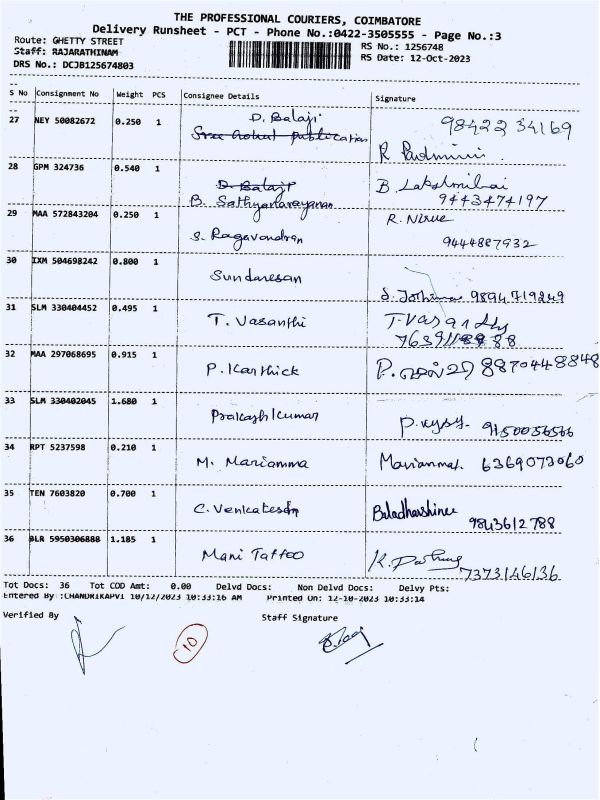 THE PROFESSIONAL COURIERS, COIMBATORE
Delivery Runsheet - PCT - Phone No.:0422-3505555 - Page No.:3
Route: GHETTY STREET
RS No.: 1256748
Staff: RAJARATHINAM
RS Date: 12-Oct-2023
DRS No.: DCJB125674803
S No Consignment No Weight PCS Consignee Details Signature
27 NEY 50082672 0.250 1 D. Balaji 98422 34169
Sree Gokul publication
R Padmini
28 GPM 324736 0.540 1 D. Balaji B Lakshmibai
B. Sathyanarayanan 9443474197
29 MAA 572843204 0.250 1 R. Nirue
S. Ragavendran 9444887932
30 IXM 504698242 0.800 1 Sundaresan
9894719249
31 SLM 330404452 0.495 1 T. Vasanthi T. Vasandhy
32 MAA 297068695 0.915 1 P. Karthick 8870448848
33 SLM 330402045 1.680 1 Prakash kumar
34 RPT 5237598 0.210 1 M. Mariamma Mariammal. 6369073060
35 TEN 7603820 0.700 1 C. Venkatesan Baladharshinee
9843612788
36 BLR 5950306888 1.185 1 Mani Tattoo
7373146136
Tot Docs: 36 Tot COD Amt: 0.00 Delvd Docs: Non Delvd Docs: Delvy Pts:
Entered By :CHANDRIKAPVI 10/12/2023 10:33:16 AM Printed On: 12-10-2023 10:33:14
Verified By Staff Signature
10